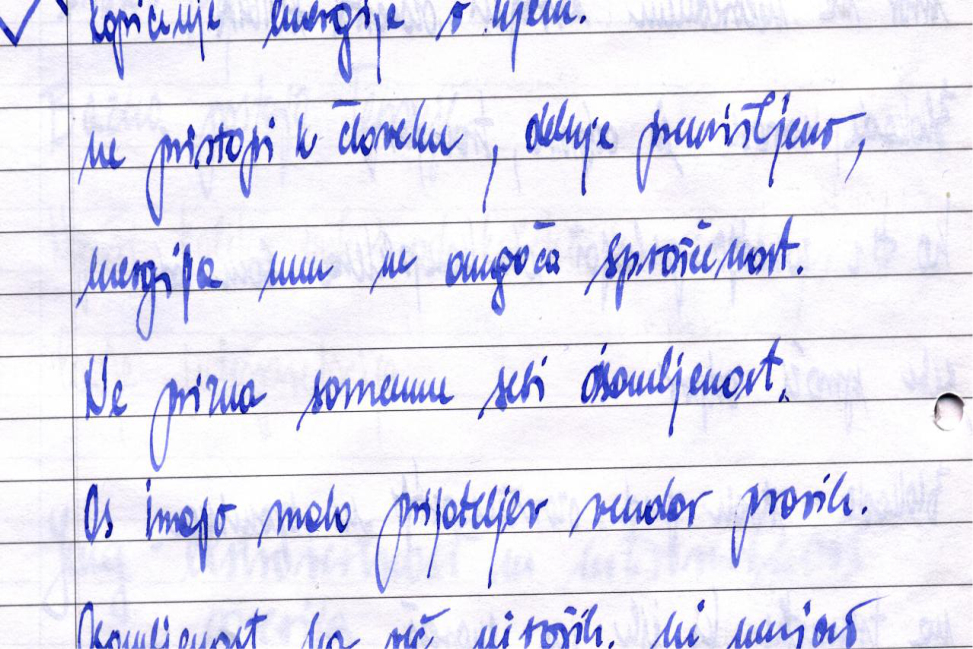 kopičenje energije v njem.
ne pristopi k človeku, deluje premišljeno,
energija mu ne omogoča sproščenost.
Ne prizna samemu sebi osamljenost.
Os imajo malo prijateljev vendar pravih.
Osamljenost ka več